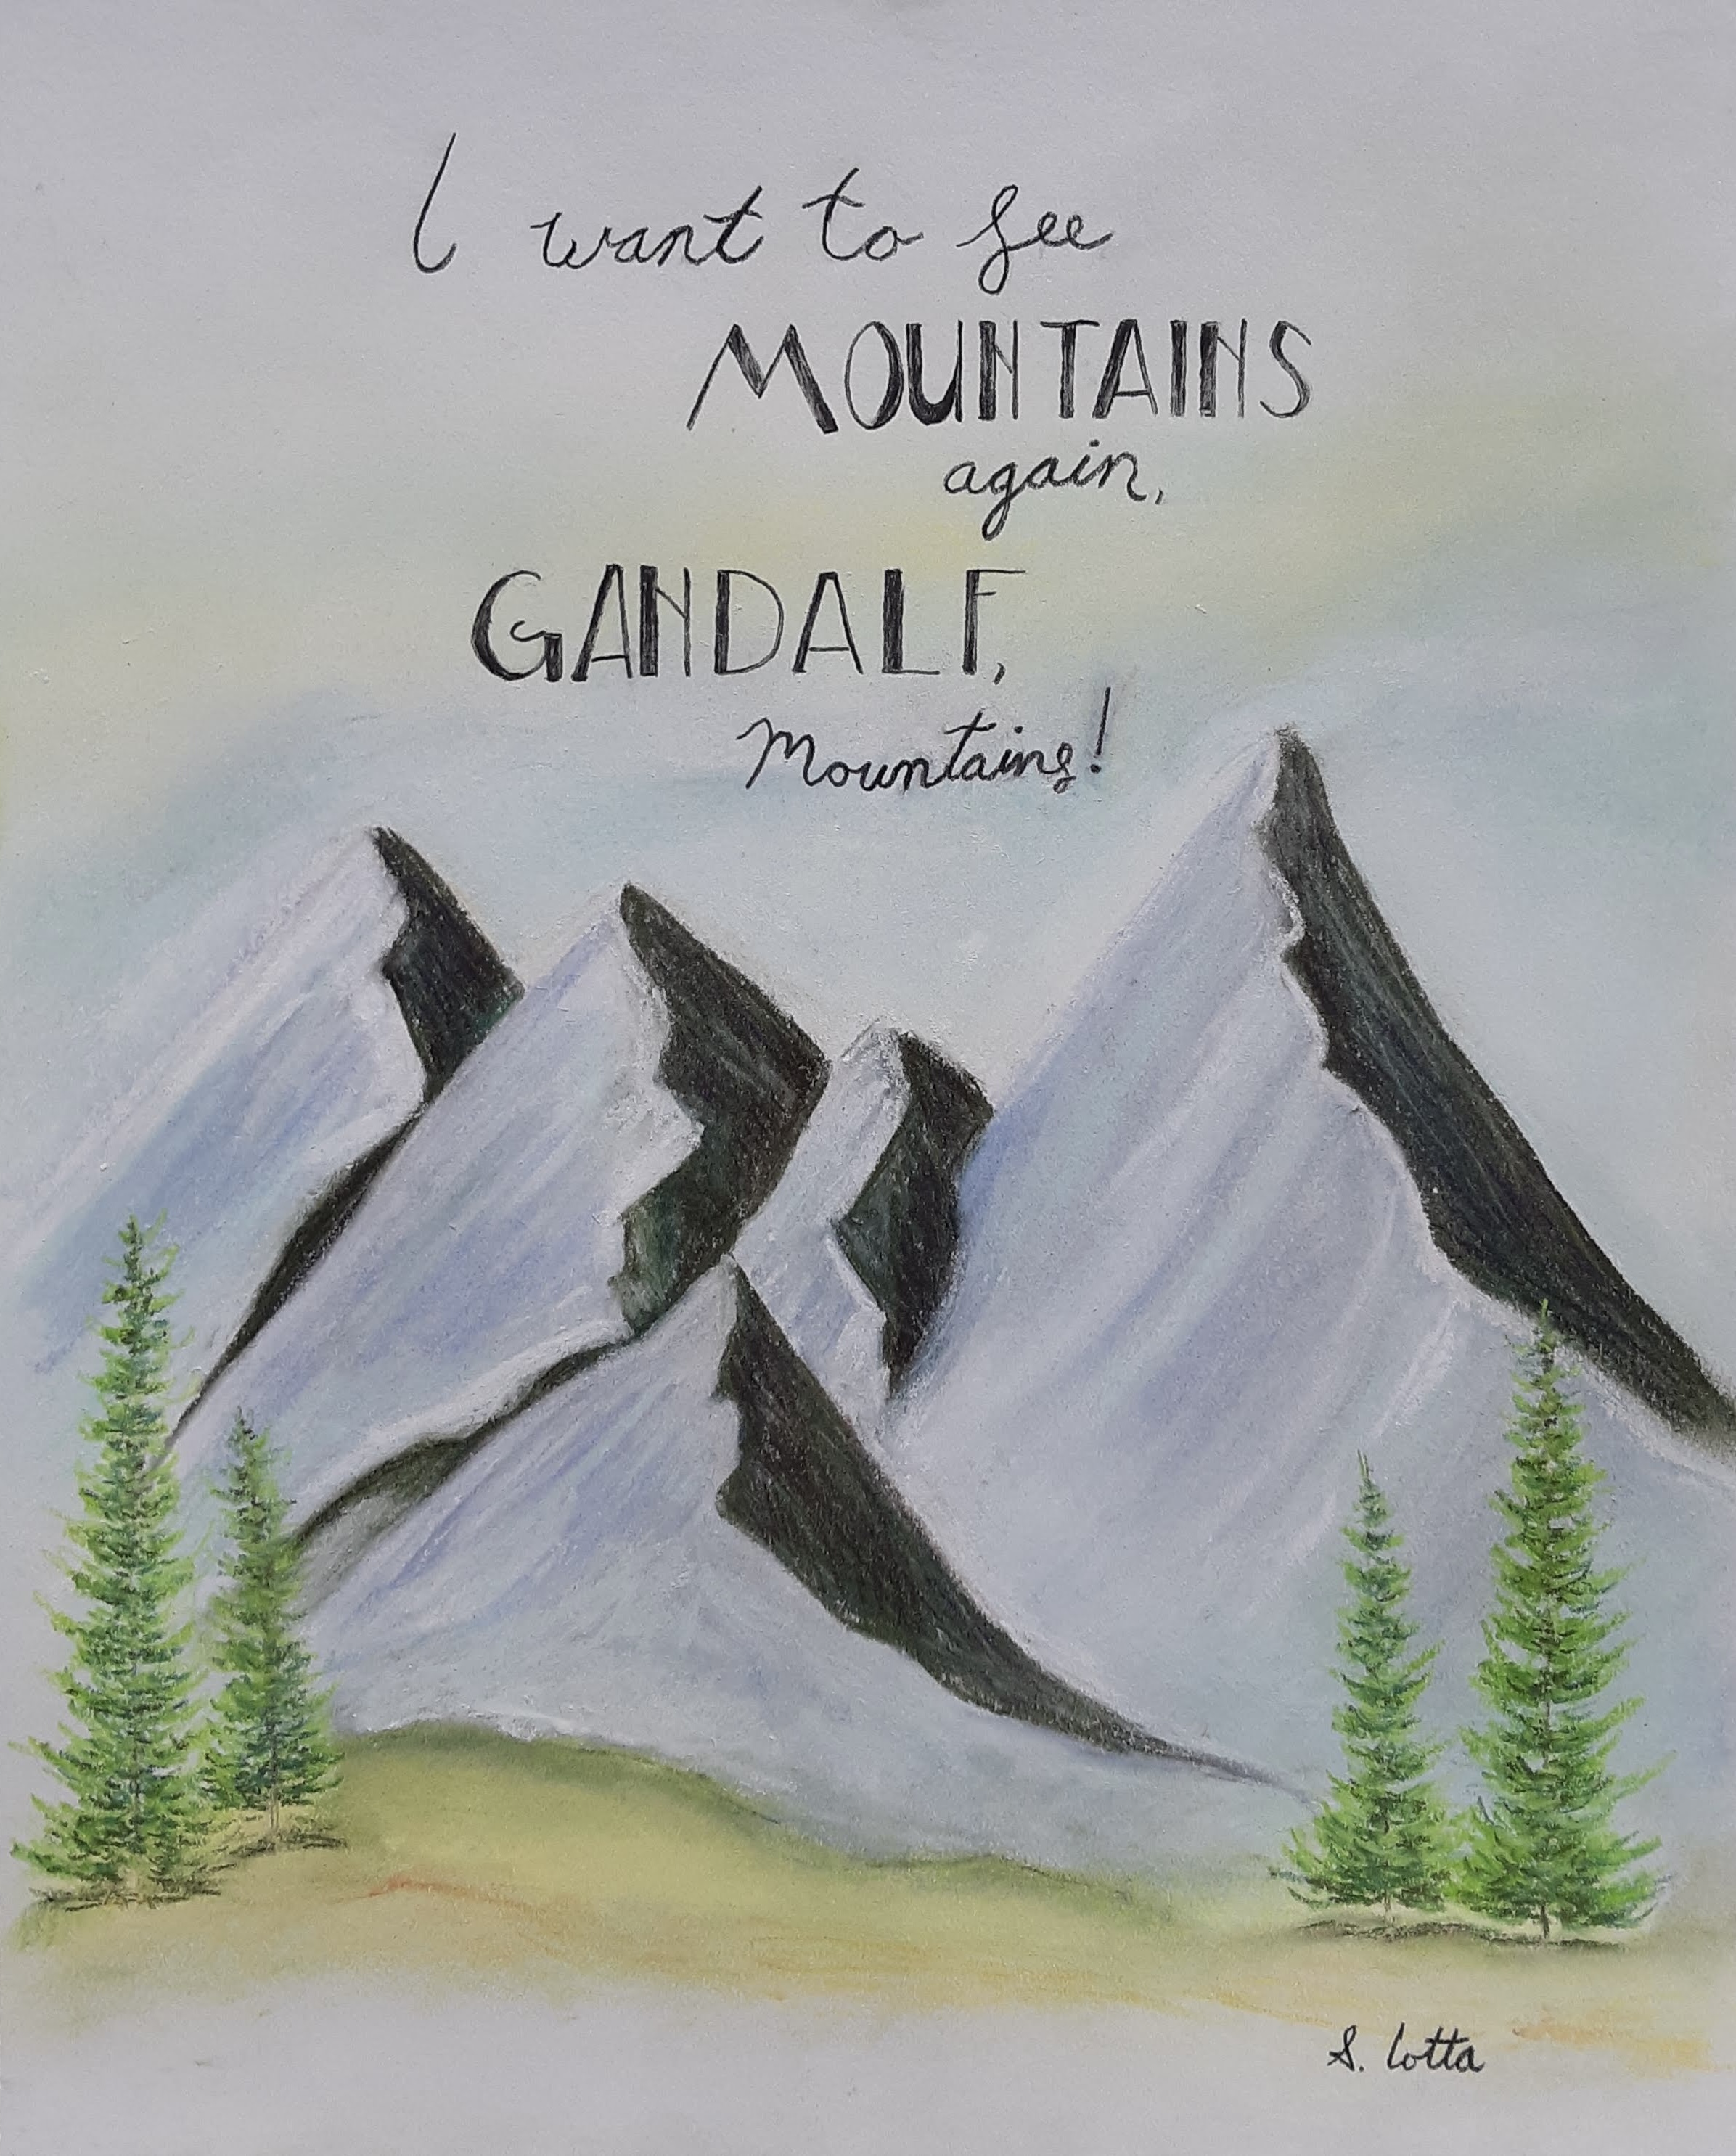 I want to see
MOUNTAINS
again,
GANDALF,
Mountains!
S. Lotta